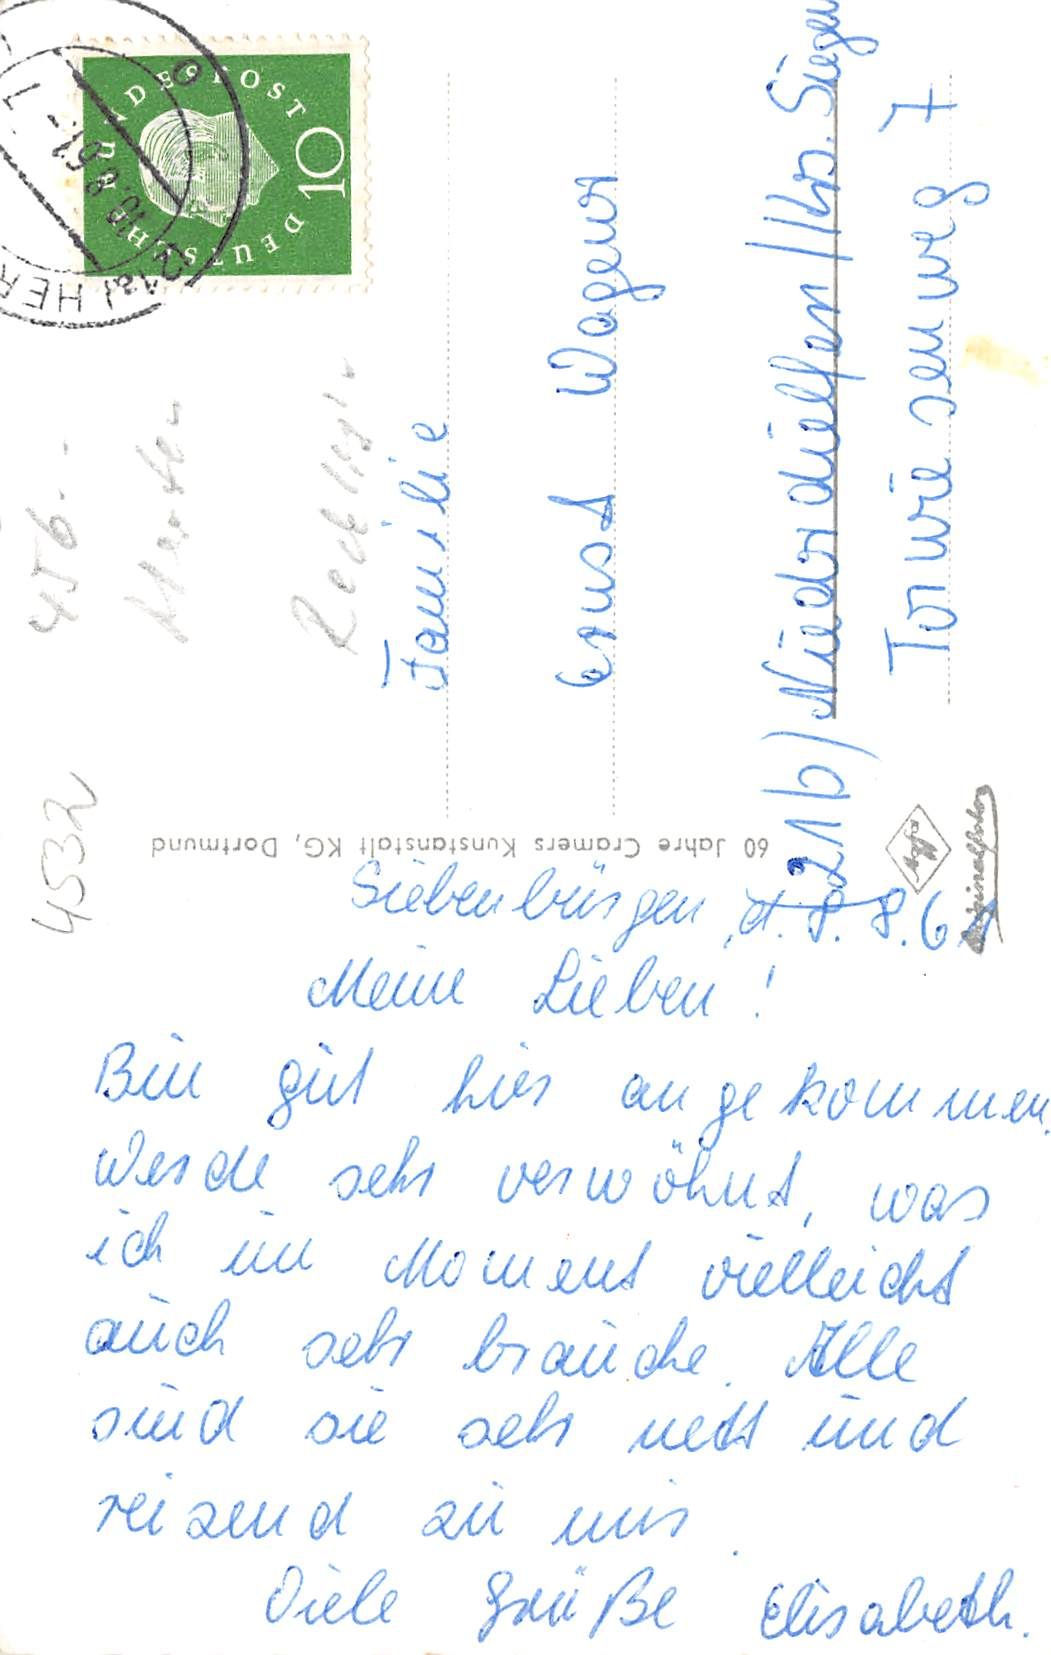 Siebenbürgen, d. 8. 8. 61
Meine Lieben!
Bin gut hier angekommen.
Werde sehr verwöhnt, was
ich im Moment vielleicht
auch sehr brauche. Alle
sind sie sehr nett und
reizend zu mir.
Viele Grüße Elisabeth.
Familie
Ernst Wagener
21b) Niederdielfen / Krs. Siegen
Tonwiesenweg 7
60 Jahre Cramers Kunstanstalt KG, Dortmund
Agfa
Originalfoto
DEUTSCHE BUNDESPOST
10
21a) HER
10.8.61-7
456.-
4532